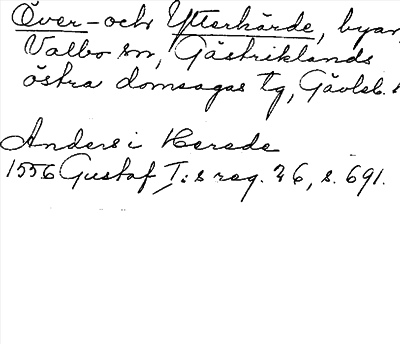 Över- och Ytterhärde, byar,
Valbo sn, Gästriklands
östra domsagas tg, Gävleb. l
Anders i Herede
1556 Gustaf I:s reg. 26, s. 691.